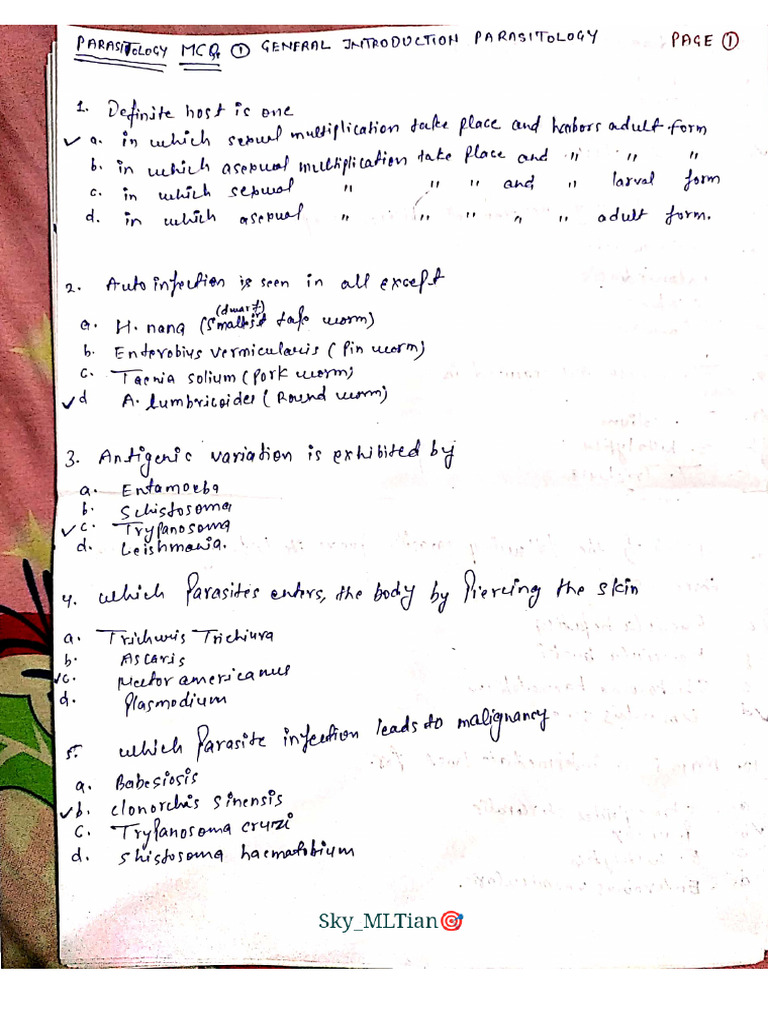 PARASITOLOGY MCQs ① GENERAL INTRODUCTION PARASITOLOGY PAGE ①
1. Definite host is one
✓ a. in which sexual multiplication take place and harbors adult form
b. in which asexual multiplication take place and " " "
c. in which sexual " " " and " larval form
d. in which asexual " " " " " adult form.
2. Auto infection is seen in all except
a. H. nana (Smallest (dwarf) tape worm)
b. Enterobius vermicularis (Pin worm)
c. Taenia solium (Pork worm)
✓ d A. lumbricoides (Round worm)
3. Antigenic variation is exhibited by
a. Entamoeba
b. Schistosoma
✓ c. Trypanosoma
d. Leishmania.
4. which Parasites enters, the body by Piercing the skin
a. Trichuris Trichiura
b. Ascaris
✓ c. Nector americanus
d. Plasmodium
5. which Parasite infection leads to malignancy
a. Babesiosis
✓ b. clonorchis sinensis
c. Trypanosoma cruzi
d. shistosoma haematobium
Sky_MLTian🎯